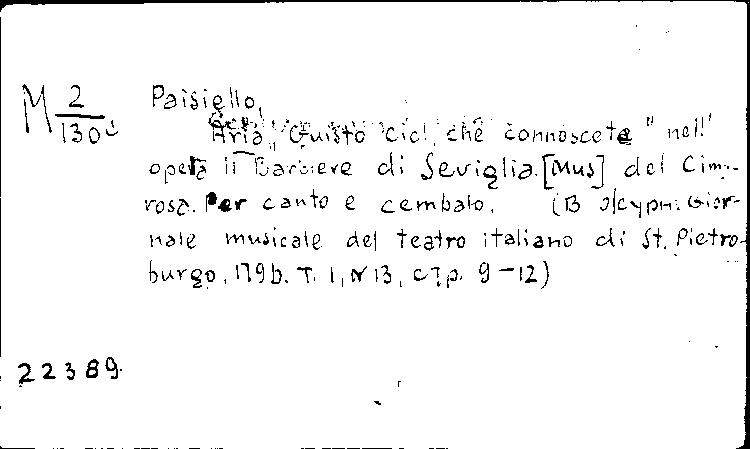 M 2/130c Paisiello,
Aria „Guisto ciel, che connoscete" nell'
opera il Barbiere di Seviglia. [Mus] del Cima-
rosa. Per canto e cembalo. (В журн: Gior-
nale musicale del teatro italiano di St. Pietro-
burgo, 179b. T. 1, N 13, стр. 9-12)
22389.